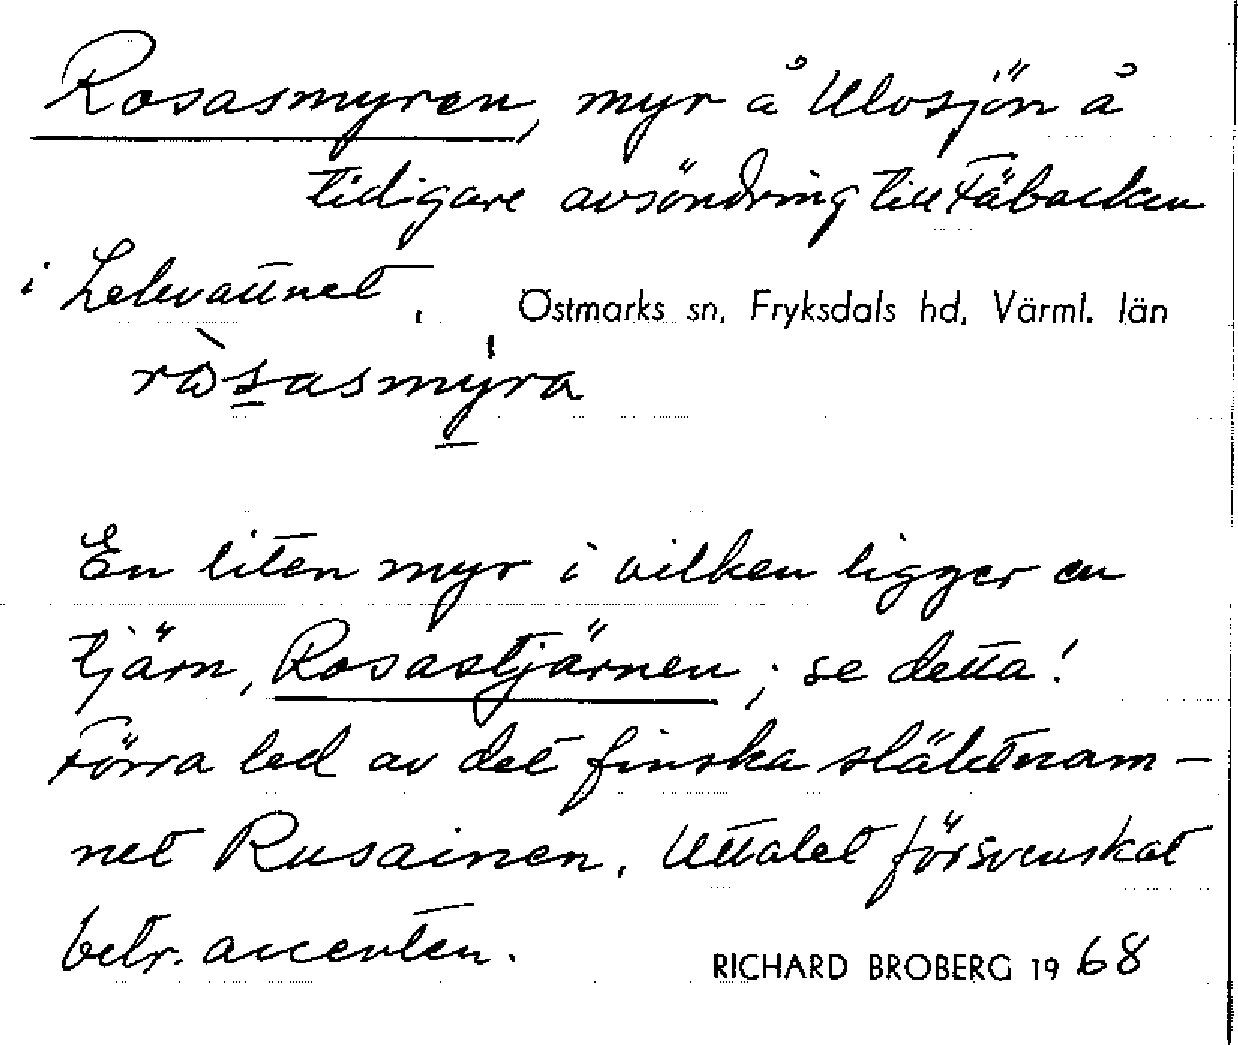 Rosasmyren, myr å Ulvsjön å
tidigare avsöndring till Fäbacken
i Lekvattnet. Östmarks sn, Fryksdals hd, Värml. län
ròsasmýra
En liten myr i vilken ligger en
tjärn, Rosastjärnen; se detta!
Förra led av det finska släktnam-
net Rusainen. Uttalet försvenskat
betr. accenten.
RICHARD BROBERG 1968